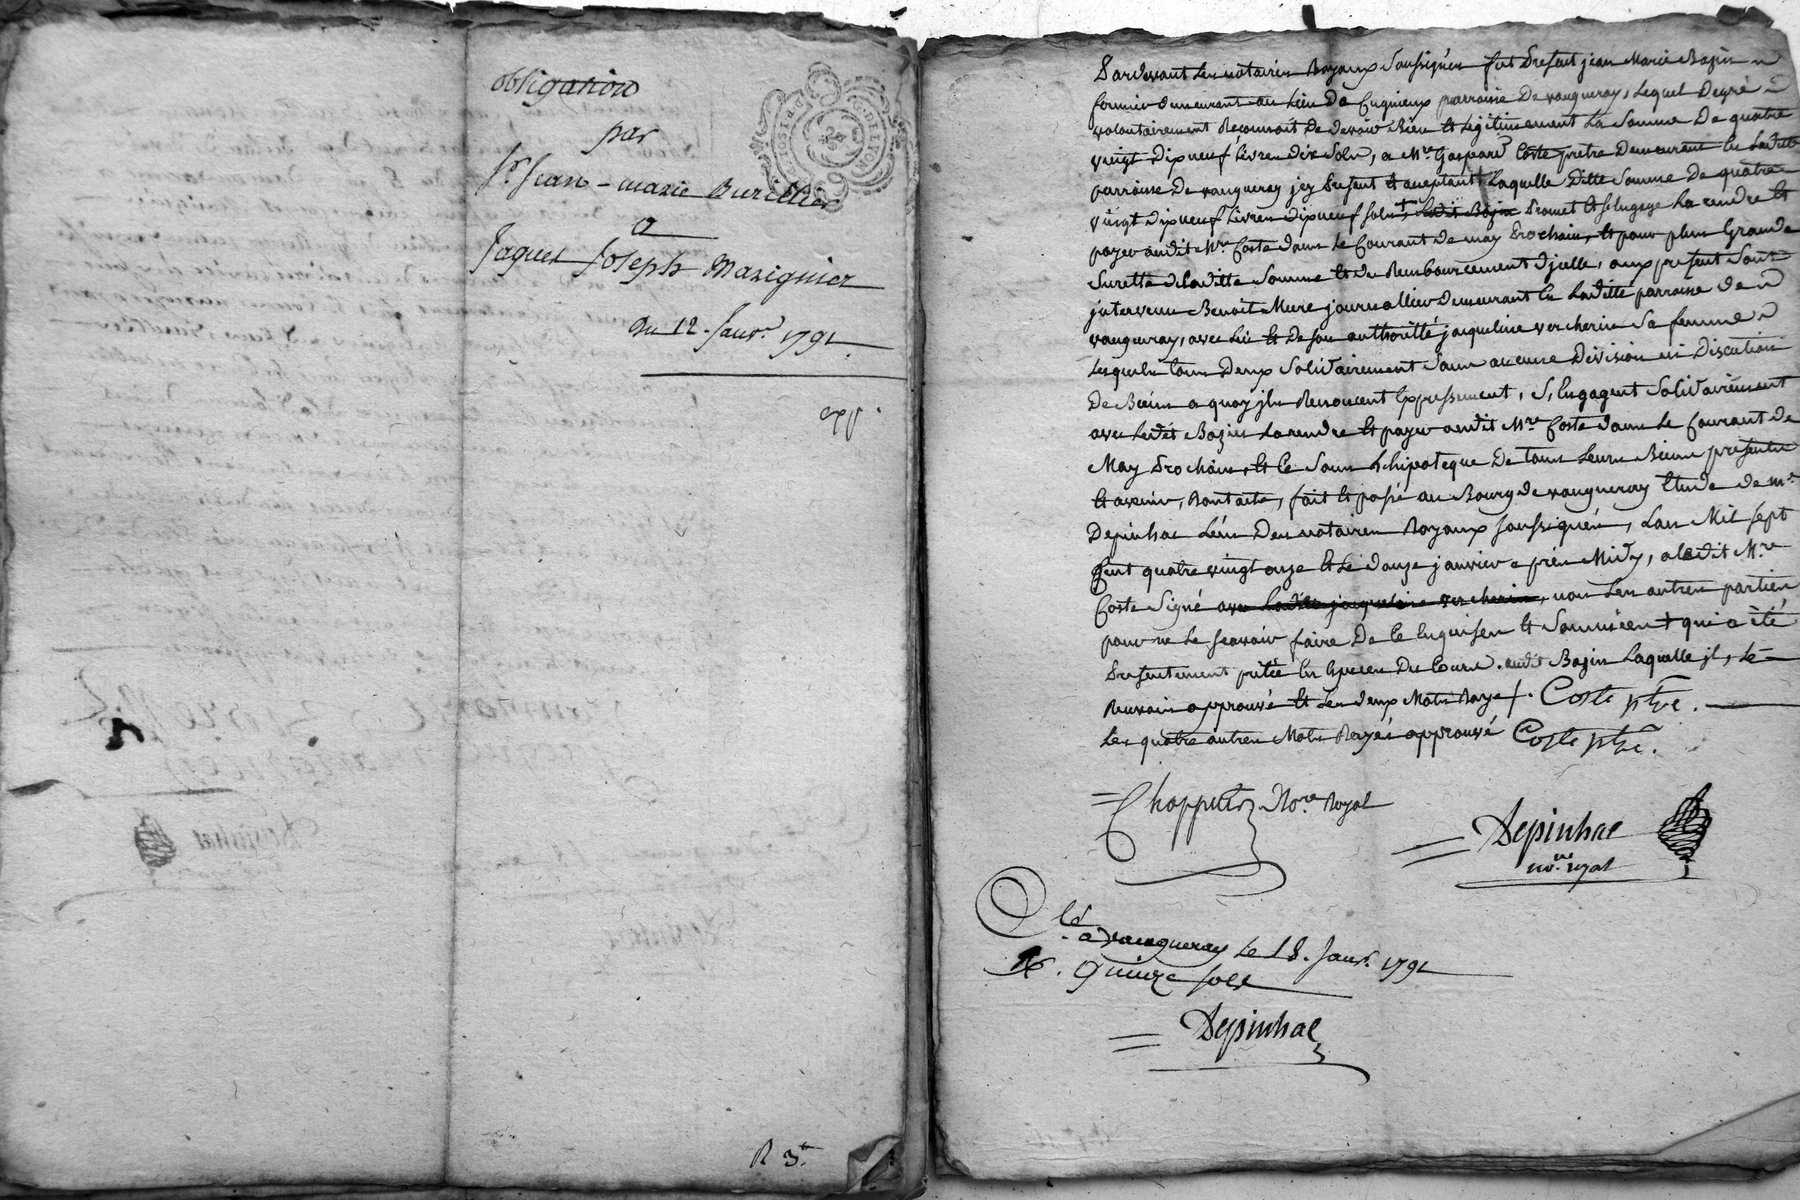 obligation
par
Sr. Jean-marie Burillier
a
Jaques Joseph Marignier
Du 12. Janvr. 1791
exp
R 3
G. DE LYON
Pardevant Les notaires Royaux Soussignés fut Present jean Marie Bazin
fermier demeurant au Lieu De Cugnieux parroisse De vaugneray, Lequel De gré
volontairement Reconnoit De devoir Bien et Legitimement La Somme De quatre
vingt Dix neuf Livres dix Sols, a Mre Gaspard Coste pretre Demeurant En Laditte
parroisse De vaugneray jcy Present et acceptant Laquelle Ditte Somme De quatre
vingt Dix neuf Livres dix neuf sols + Ledit Bazin Promet Et s'Engage La rendre Et
payer audit Mre Coste dans Le Courant De may Prochain, Et pour plus Grande
Surette de laditte Somme Et du Remboursement d'jcelle, aux presentes Sont
jntervenu Benoit Mure journallier demeurant En Laditte parroisse de
vaugneray, avec Lui Et De son authorité jacqueline vercherin Sa femme
Lesquels tous Deux Solidairement Sans aucune Division ni Discution
De Biens a quoy jls Renoncent Expressement, S'Engagent Solidairement
avec Ledit Bazin La rendre Et payer audit Mre Coste dans Le Courant de
May Prochain, Et Ce Sous L'hipoteque De tous Leurs Biens presents
Et avenir, Dont acte, fait Et passé au Bourg de vaugneray Etude de Me
Depinhac L'un Des notaires Royaux soussignés, L'an Mil sept
Cent quatre vingt onze Et Le douze janvier après Midy, a Ledit Mre
Coste Signé avec Laditte jacqueline vercherin, non Les autres parties
pour ne Le scavoir faire De Ce Enquises Et Sommées + qui a été
Presentement prêtée En Especes Du Cours. audit Bazin Laquelle jl, Le
Renvoi approuvé Et Les deux Mots Rayé /. Coste ptre.
Les quatre autres Mots Rayés approuvé Coste ptre.
Chappuis Nore Royal
Depinhac
nore. royal
Clé
a vaugneray Le 18. Janvr. 1791
R. quinze sols
Depinhac